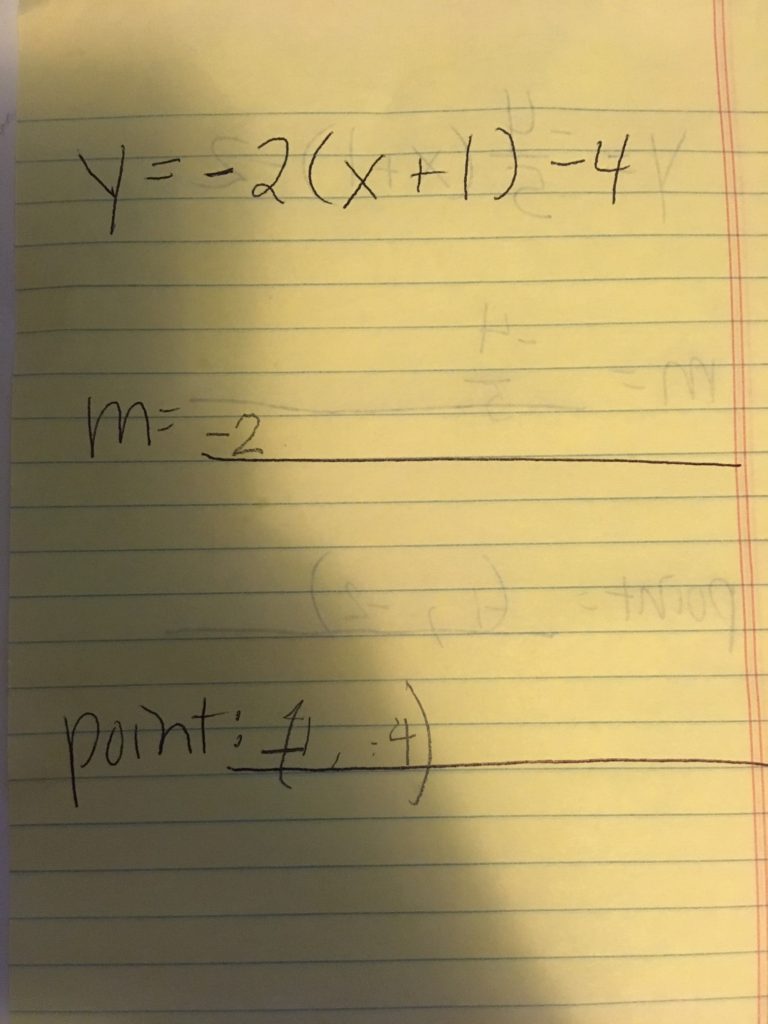 y = -2(x+1) -4
m= -2
point: (-1, -4)